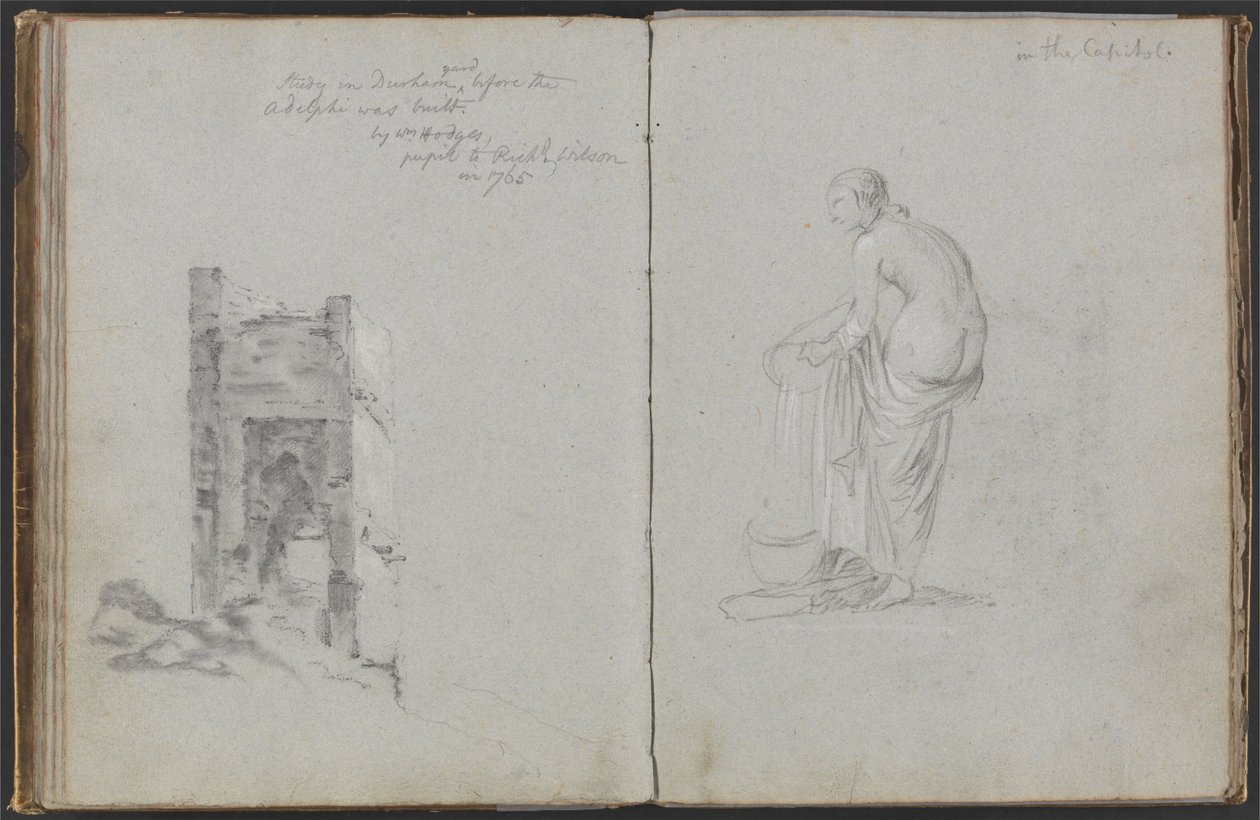 Study in Durham yard before the
Adelphi was built.
by Wm Hodges,
pupil to Richd Wilson
in 1765
in the Capitol.